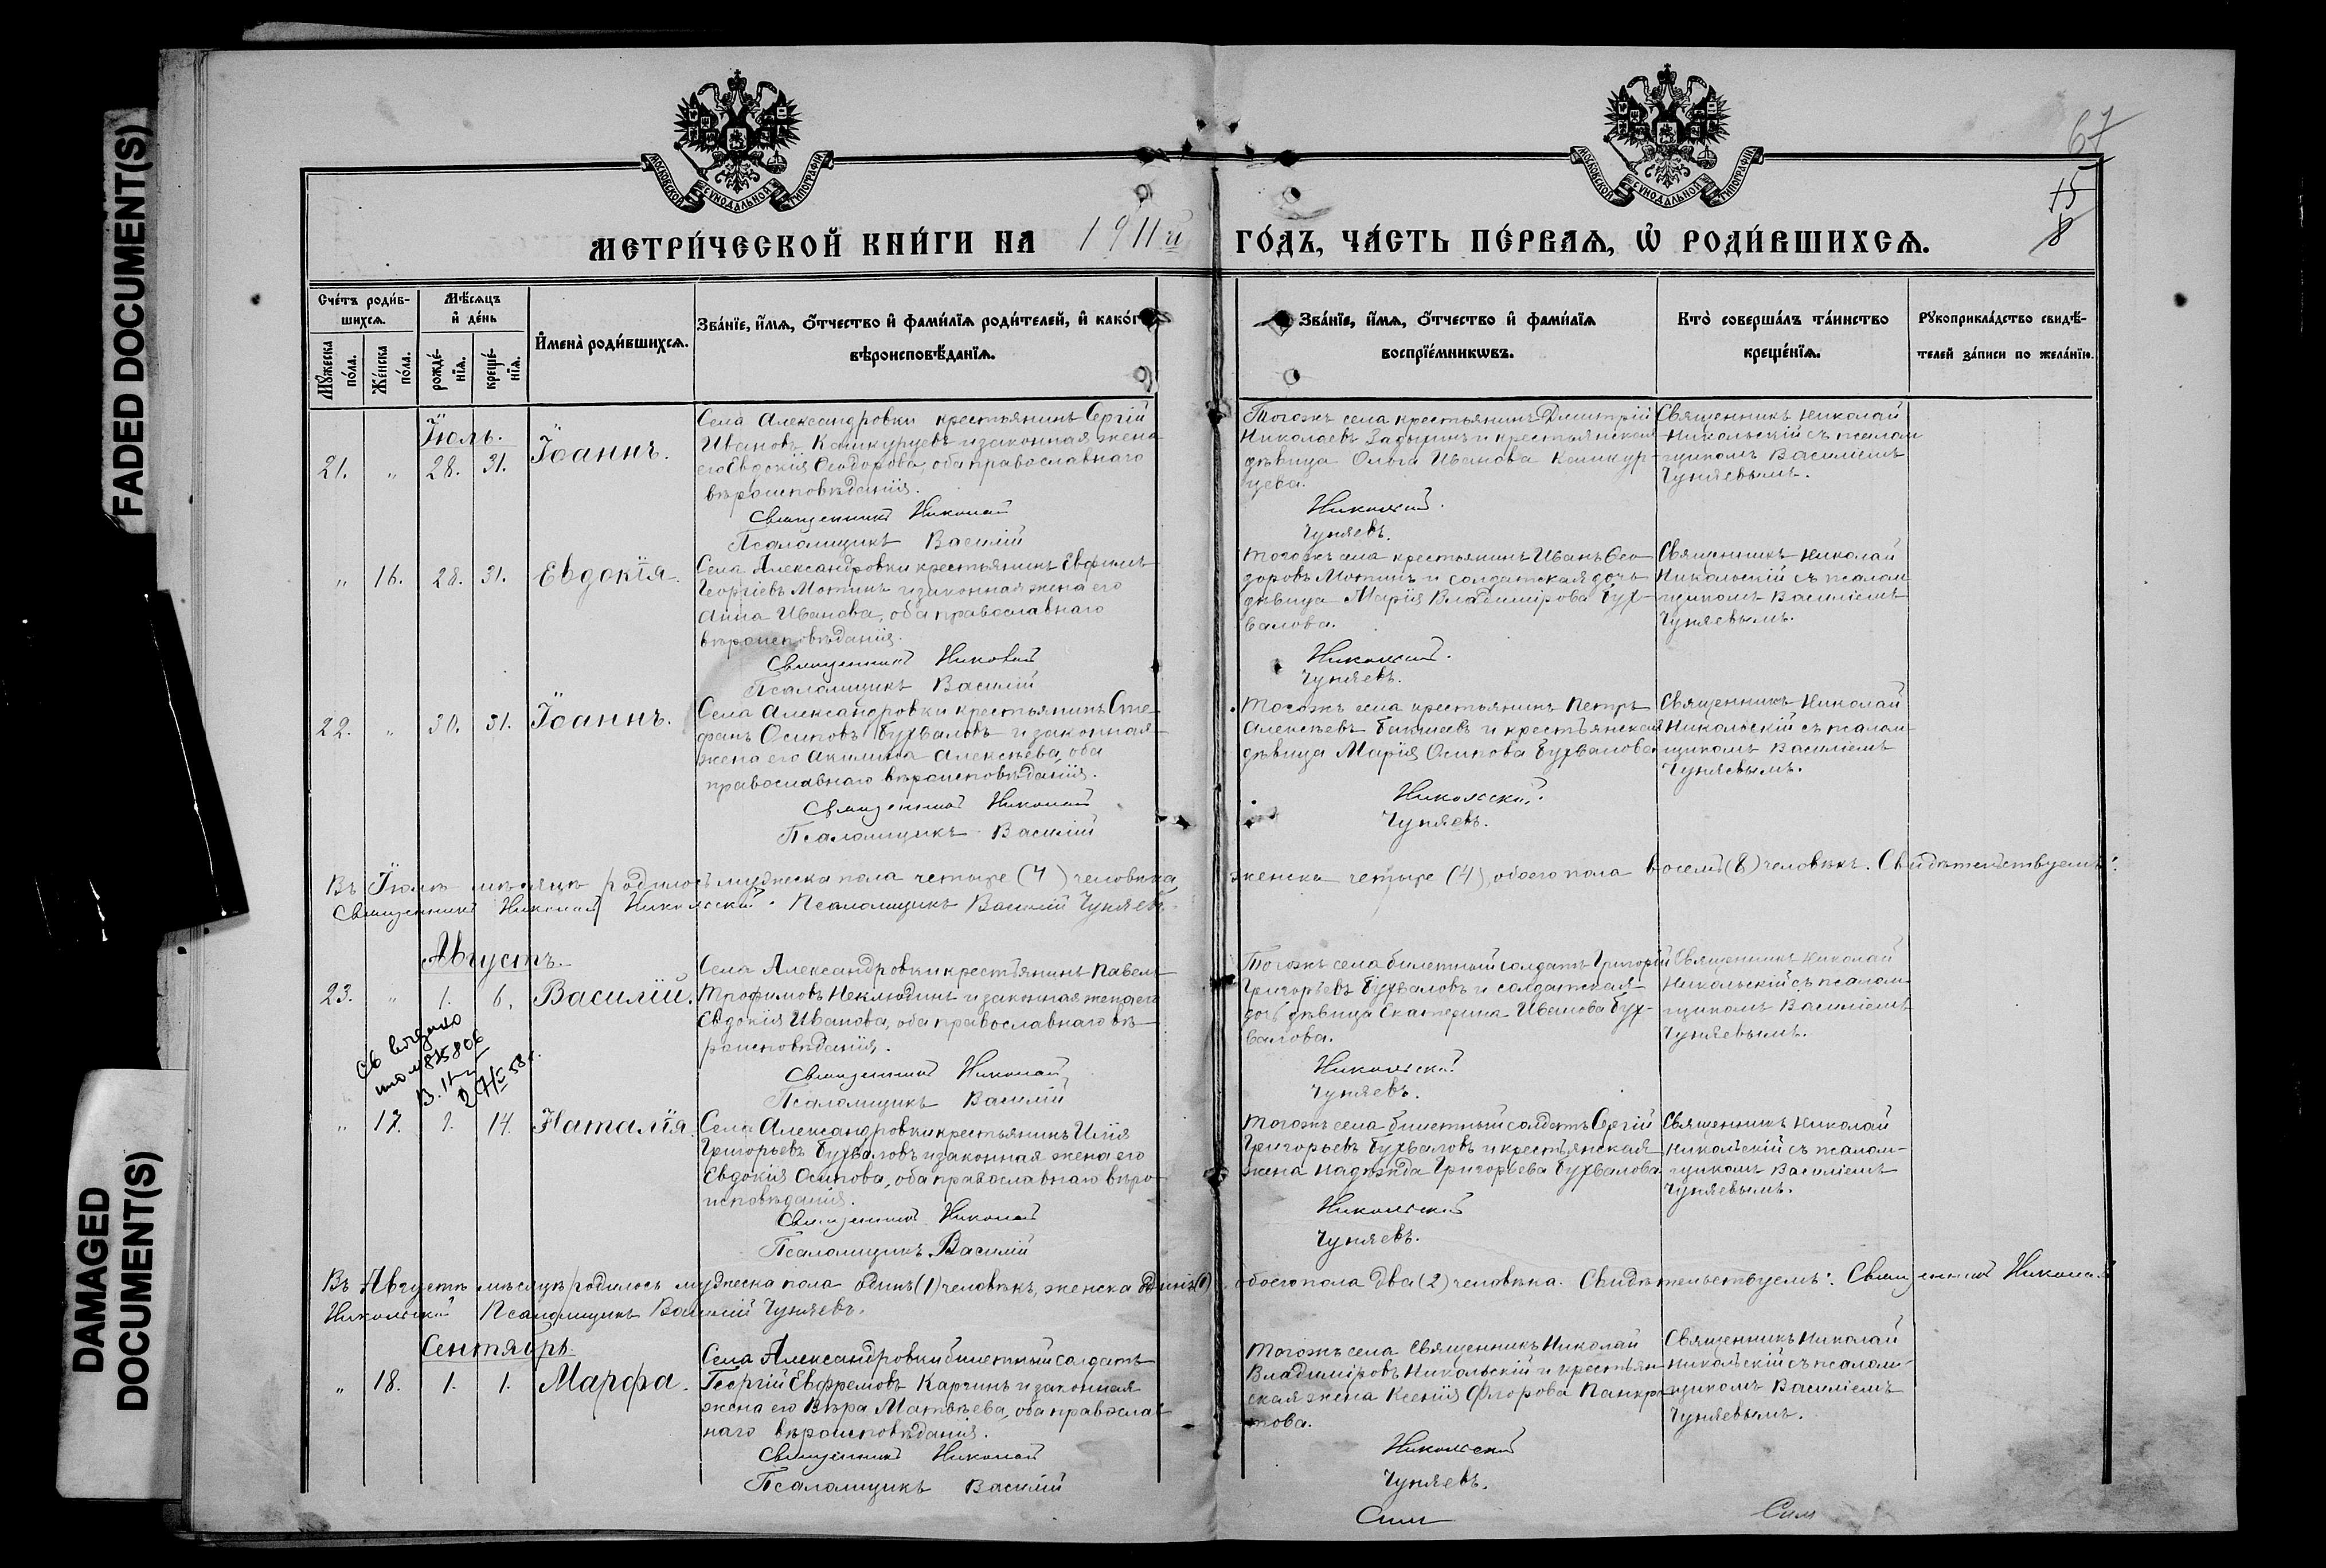 FADED DOCUMENT(S)
DAMAGED
DOCUMENT(S)
МОСКОВСКОЙ СУНОДАЛЬНОЙ ТИПОГРАФІИ
МОСКОВСКОЙ СУНОДАЛЬНОЙ ТИПОГРАФІИ
67
15
8
МЕТРИ́ЧЕСКОЙ КНИ́ГИ НА 1911й ГО́ДЪ, ЧА́СТЬ ПЕ́РВАѦ, Ѡ҆ РОДИ́ВШИХСѦ.
Сче́тъ роди́в-
шихсѧ.
Мꙋ́жеска по́ла.
Же́нска по́ла.
Мѣ́сѧцъ
и҆ де́нь
рожде́-
нїѧ.
креще́-
нїѧ.
И҆мена̀ роди́вшихсѧ.
Зва́нїе, и҆́мѧ, ѻ҆́тчество и҆ фами́лїѧ роди́телей, и҆ како́гѡ
вѣроисповѣ́данїѧ.
Зва́нїе, и҆́мѧ, ѻ҆́тчество и҆ фами́лїѧ
воспрїе́мникѡвъ.
Кто̀ соверша́лъ та́инство
креще́нїѧ.
Рꙋкоприкла́дство свидѣ́-
телей за́писи по жела́нїю.
Іюль.
21. „ 28. 31. Іоаннъ.
Села Александровки крестьянинъ Сергій
Ивановъ Кашкурцевъ и законная жена
его Евдокія Ѳеодорова, оба православнаго
вѣроисповѣданія.
Священникъ Николай
Псаломщикъ Василій
Тогожъ села крестьянинъ Димитрій
Николаевъ и крестьянская
дѣвица Ольга Иванова Кашкур-
цева.
Никольскій.
Чуняевъ.
Священникъ Николай
Никольскій съ псалом-
щикомъ Василіемъ
Чуняевымъ.
„ 16. 28. 31. Евдокія.
Села Александровки крестьянинъ Евфимъ
Георгіевъ Мотинъ и законная жена его
Анна Иванова, оба православнаго
вѣроисповѣданія.
Священникъ Николай
Псаломщикъ Василій
Тогожъ села крестьянинъ Иванъ Ѳео-
доровъ Мотинъ и солдатская дочь
дѣвица Марія Владимірова Бух-
валова.
Никольскій.
Чуняевъ.
Священникъ Николай
Никольскій съ псалом-
щикомъ Василіемъ
Чуняевымъ.
22. „ 30. 31. Іоаннъ.
Села Александровки крестьянинъ Сте-
фанъ Осиповъ Бухваловъ и законная
жена его Акилина Алексѣева, оба
православнаго вѣроисповѣданія.
Священникъ Николай
Псаломщикъ Василій
Тогожъ села крестьянинъ Петръ
Алексѣевъ и крестьянская
дѣвица Марія Осипова Бухвалова
Никольскій.
Чуняевъ.
Священникъ Николай
Никольскій съ псалом-
щикомъ Василіемъ
Чуняевымъ.
Въ Іюлѣ мѣсяцѣ родилось мужеска пола четыре (4) человѣка, женска четыре (4), обоего пола восемь (8) человѣкъ. Свидѣтельствуемъ:
Священникъ Николай Никольскій. Псаломщикъ Василій Чуняевъ.
Августъ.
23. „ 1. 6. Василій.
Села Александровки крестьянинъ Павелъ
Трофимовъ Неклюдинъ и законная жена его
Евдокія Иванова, оба православнаго вѣ-
роисповѣданія.
Священникъ Николай
Псаломщикъ Василій
Тогожъ села билетный солдатъ Григорій
Григорьевъ Бухваловъ и солдатская
дочь дѣвица Екатерина Иванова Бух-
валова.
Никольскій
Чуняевъ.
Священникъ Николай
Никольскій съ псалом-
щикомъ Василіемъ
Чуняевымъ.
„ 17. 14. Наталія.
Села Александровки крестьянинъ Илія
Григорьевъ Бухваловъ и законная жена его
Евдокія Осипова, оба православнаго вѣро-
исповѣданія.
Священникъ Николай
Псаломщикъ Василій
Тогожъ села билетный солдатъ Сергій
Григорьевъ Бухваловъ и крестьянская
жена Надежда Григорьева Бухвалова.
Никольскій
Чуняевъ.
Священникъ Николай
Никольскій съ псалом-
щикомъ Василіемъ
Чуняевымъ.
Въ Августѣ мѣсяцѣ родилось мужеска пола одинъ (1) человѣкъ, женска (1), обоего пола два (2) человѣка. Свидѣтельствуемъ: Священникъ Николай
Никольскій Псаломщикъ Василій Чуняевъ.
Сентябрь.
„ 18. 1. 1. Марфа.
Села Александровки билетный солдатъ
Георгій Евфремовъ Карчинъ и законная
жена его Вѣра Матвѣева, оба православ-
наго вѣроисповѣданія.
Священникъ Николай
Псаломщикъ Василій
Тогожъ села Священникъ Николай
Владиміровъ Никольскій и крестьян-
ская жена Ксенія Флорова Панкра-
това.
Никольскій
Чуняевъ.
Священникъ Николай
Никольскій съ псалом-
щикомъ Василіемъ
Чуняевымъ.